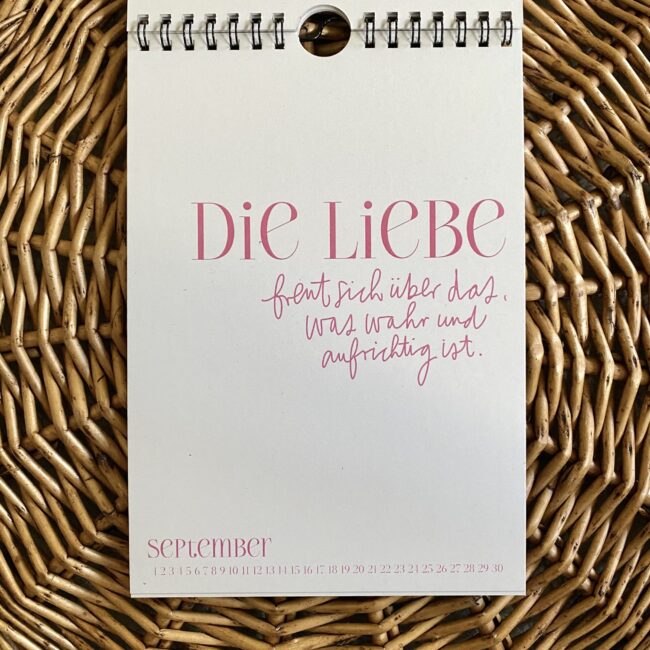 Die Liebe
freut sich über das,
was wahr und
aufrichtig ist.
September
1 2 3 4 5 6 7 8 9 10 11 12 13 14 15 16 17 18 19 20 21 22 23 24 25 26 27 28 29 30